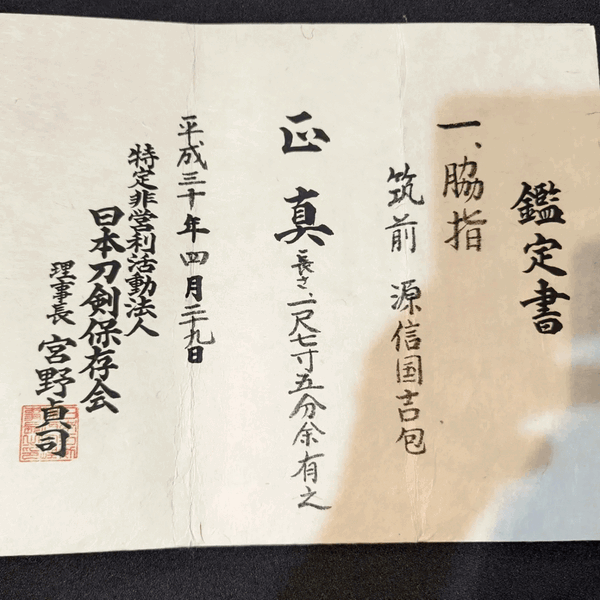 鑑定書
一、脇指
筑前 源信国吉包
正真
長さ、一尺七寸五分余有之
平成三十年四月二十九日
特定非営利活動法人
日本刀剣保存会
理事長 宮野貞司